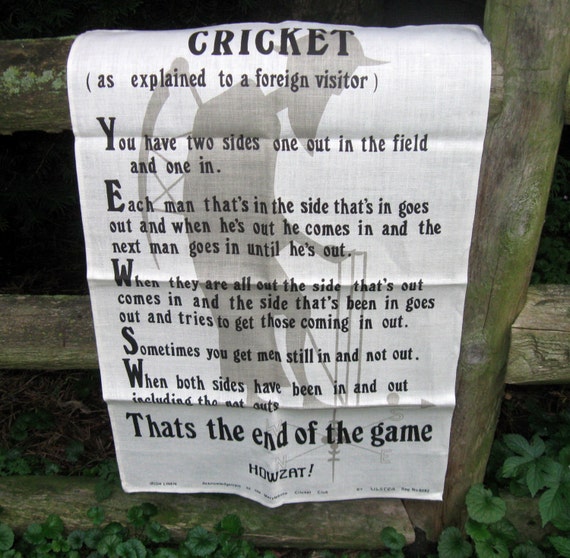 CRICKET
( as explained to a foreign visitor )
You have two sides one out in the field
and one in.
Each man that's in the side that's in goes
out and when he's out he comes in and the
next man goes in until he's out.
When they are all out the side that's out
comes in and the side that's been in goes
out and tries to get those coming in out.
Sometimes you get men still in and not out.
When both sides have been in and out
including the not outs
Thats the end of the game
HOWZAT!
IRISH LINEN Cricket Club BY ULSTER